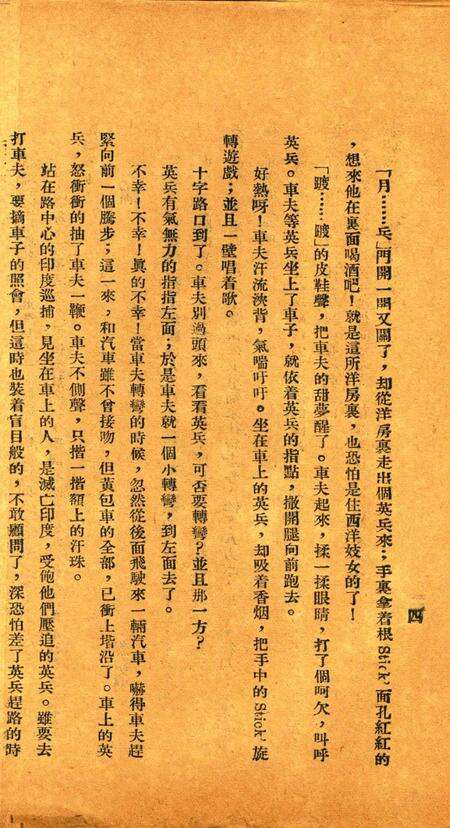 四
「月……兵」門開一開又關了，却從洋房裏走出個英兵來；手裏拿着根Stick，面孔紅紅的
，想來他在裏面喝酒吧！就是這所洋房裏，也恐怕是住西洋妓女的了！
「踱……踱」的皮鞋聲，把車夫的甜夢醒了。車夫起來，揉一揉眼睛，打了個呵欠，叫呼
英兵。車夫等英兵坐上了車子，就依着英兵的指點，撒開腿向前跑去。
好熱呀！車夫汗流浹背，氣喘吁吁。坐在車上的英兵，却吸着香烟，把手中的Stick，旋
轉遊戲；並且一壁唱着歌。
十字路口到了。車夫別過頭來，看看英兵，可否要轉彎？並且那一方？
英兵有氣無力的指指左面；於是車夫就一個小轉彎，到左面去了。
不幸！不幸！眞的不幸！當車夫轉彎的時候，忽然從後面飛駛來一輛汽車，嚇得車夫趕
緊向前一個騰步；這一來，和汽車雖不曾接吻，但黃包車的全部，已衝上堦沿了。車上的英
兵，怒衝衝的抽了車夫一鞭。車夫不側聲，只揩一揩額上的汗珠。
站在路中心的印度巡捕，見坐在車上的人，是滅亡印度，受飽他們壓迫的英兵。雖要去
打車夫，要摘車子的照會，但這時也裝着盲目般的，不敢顧問了，深恐怕差了英兵趕路的時